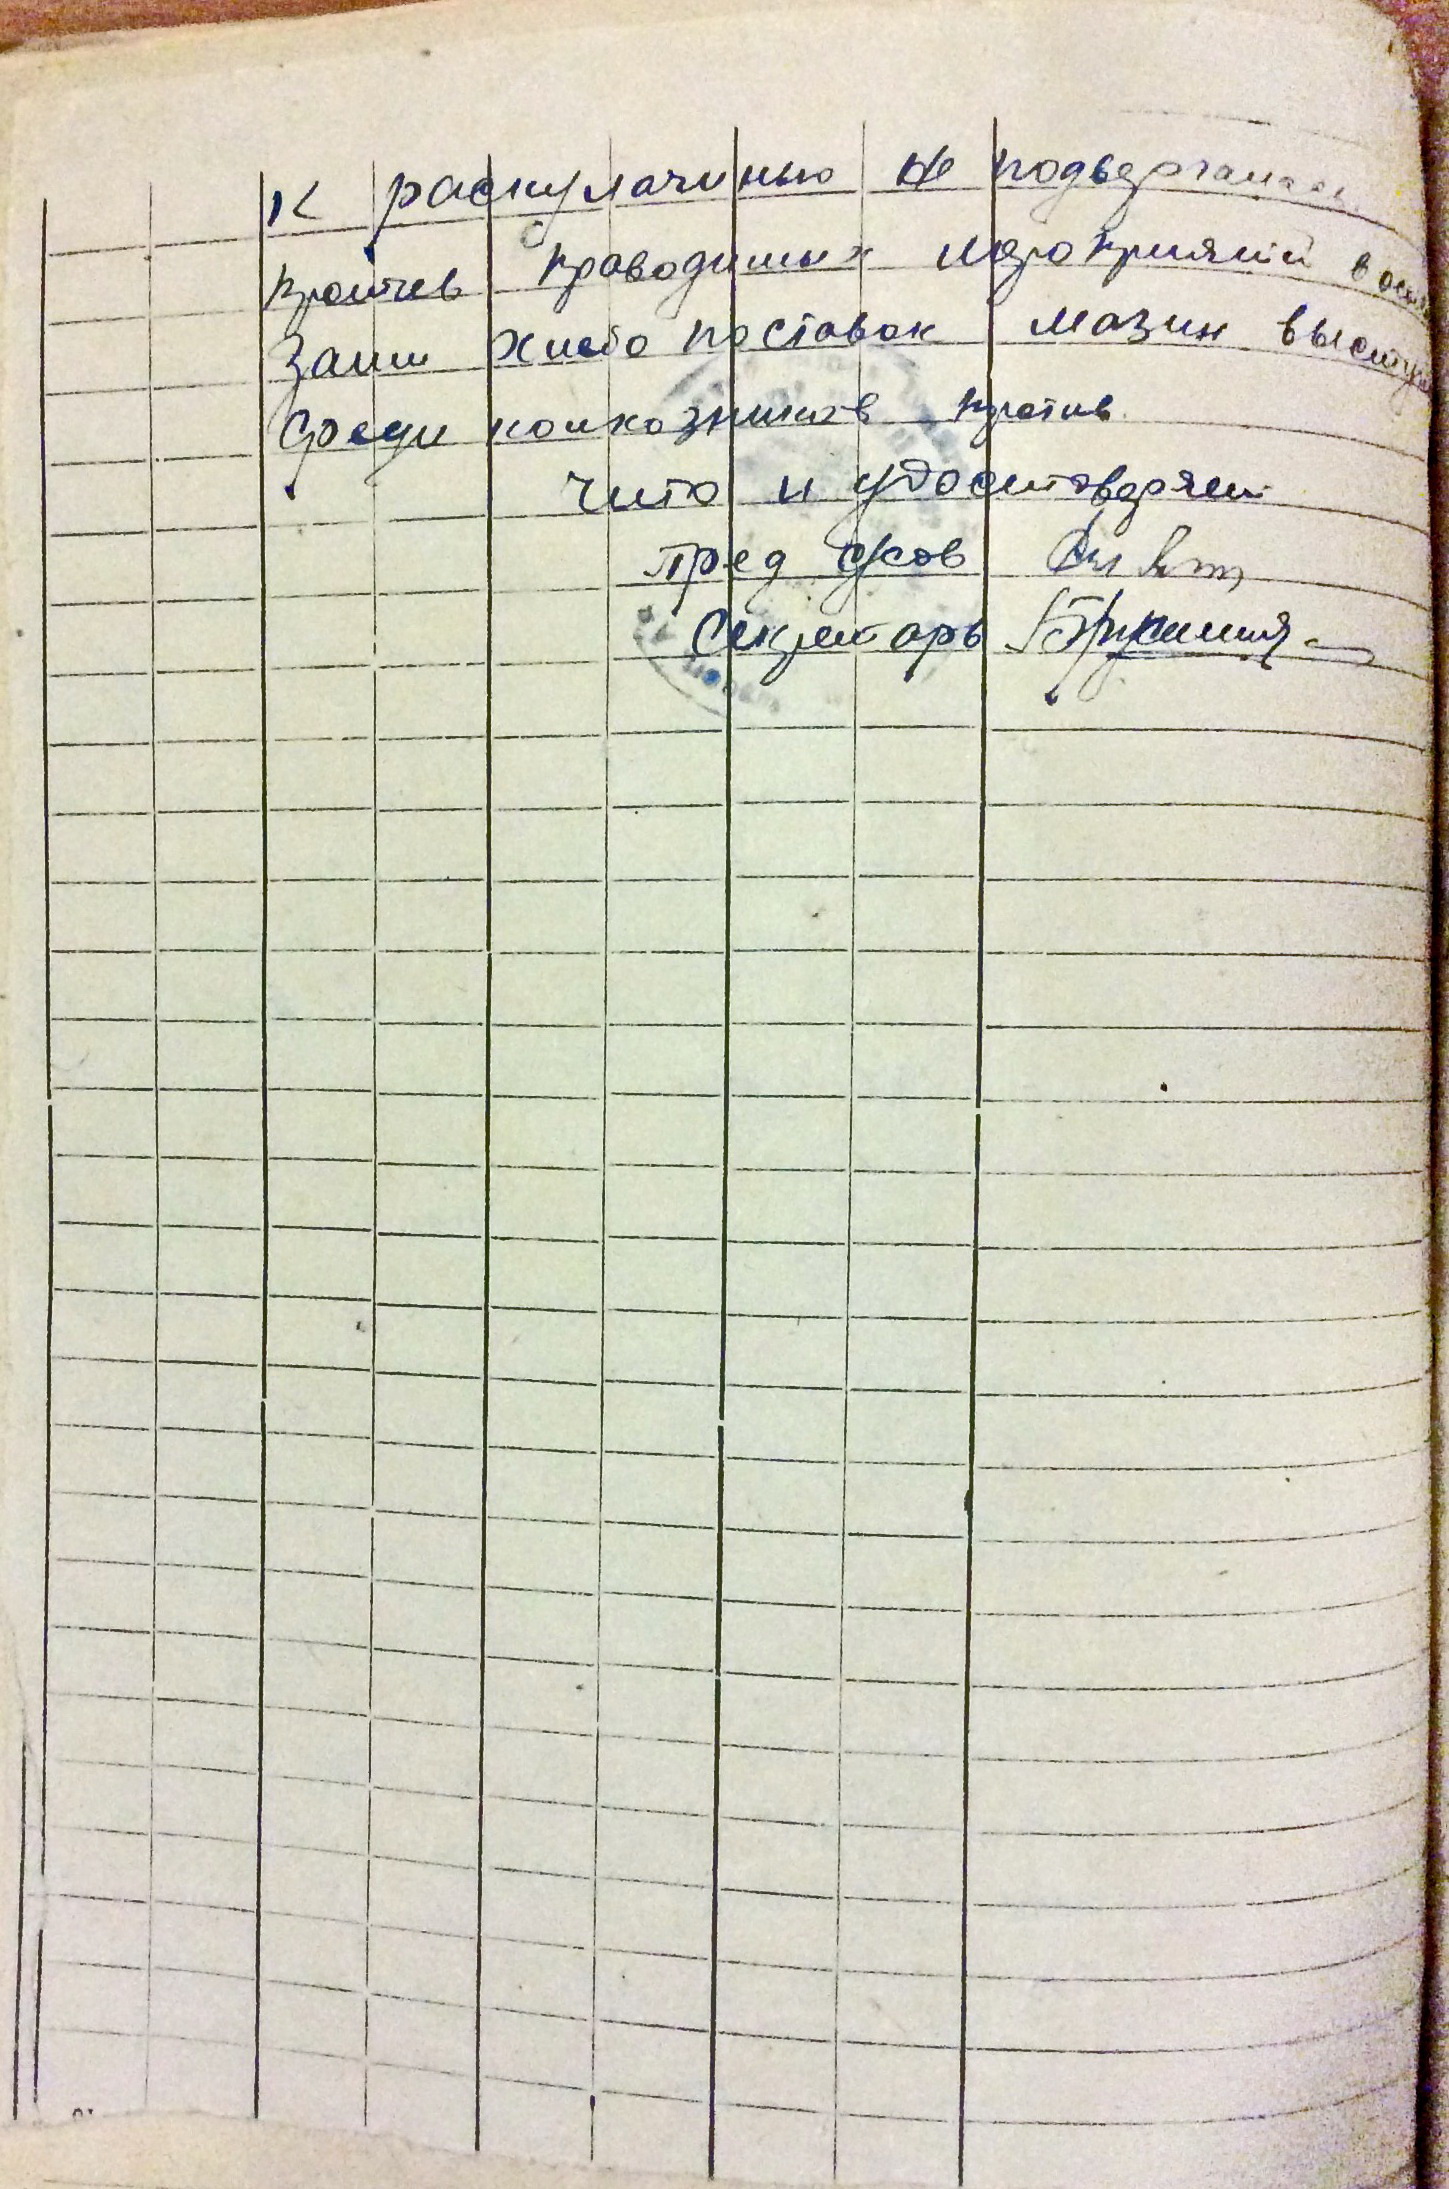 К раскулачинью не подвергалась
против проводимых мероприятий в
заии хлебо поставок мазин высту
среди колхозников против
что и удостоверяет
пред с/сов
Секретарь